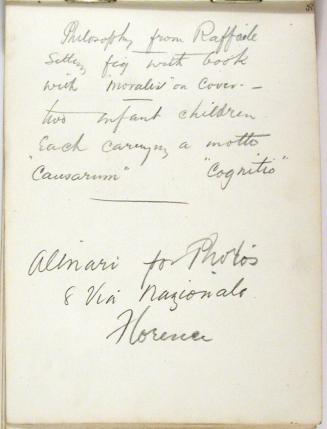 Philosophy from Raffaele
Sitting fig with book
with "Moralis" on cover. -
two infant children
Each carrying a motto
"Causarum" "Cognitio"
Alinari for Photos
8 Via Nazionale
Florence